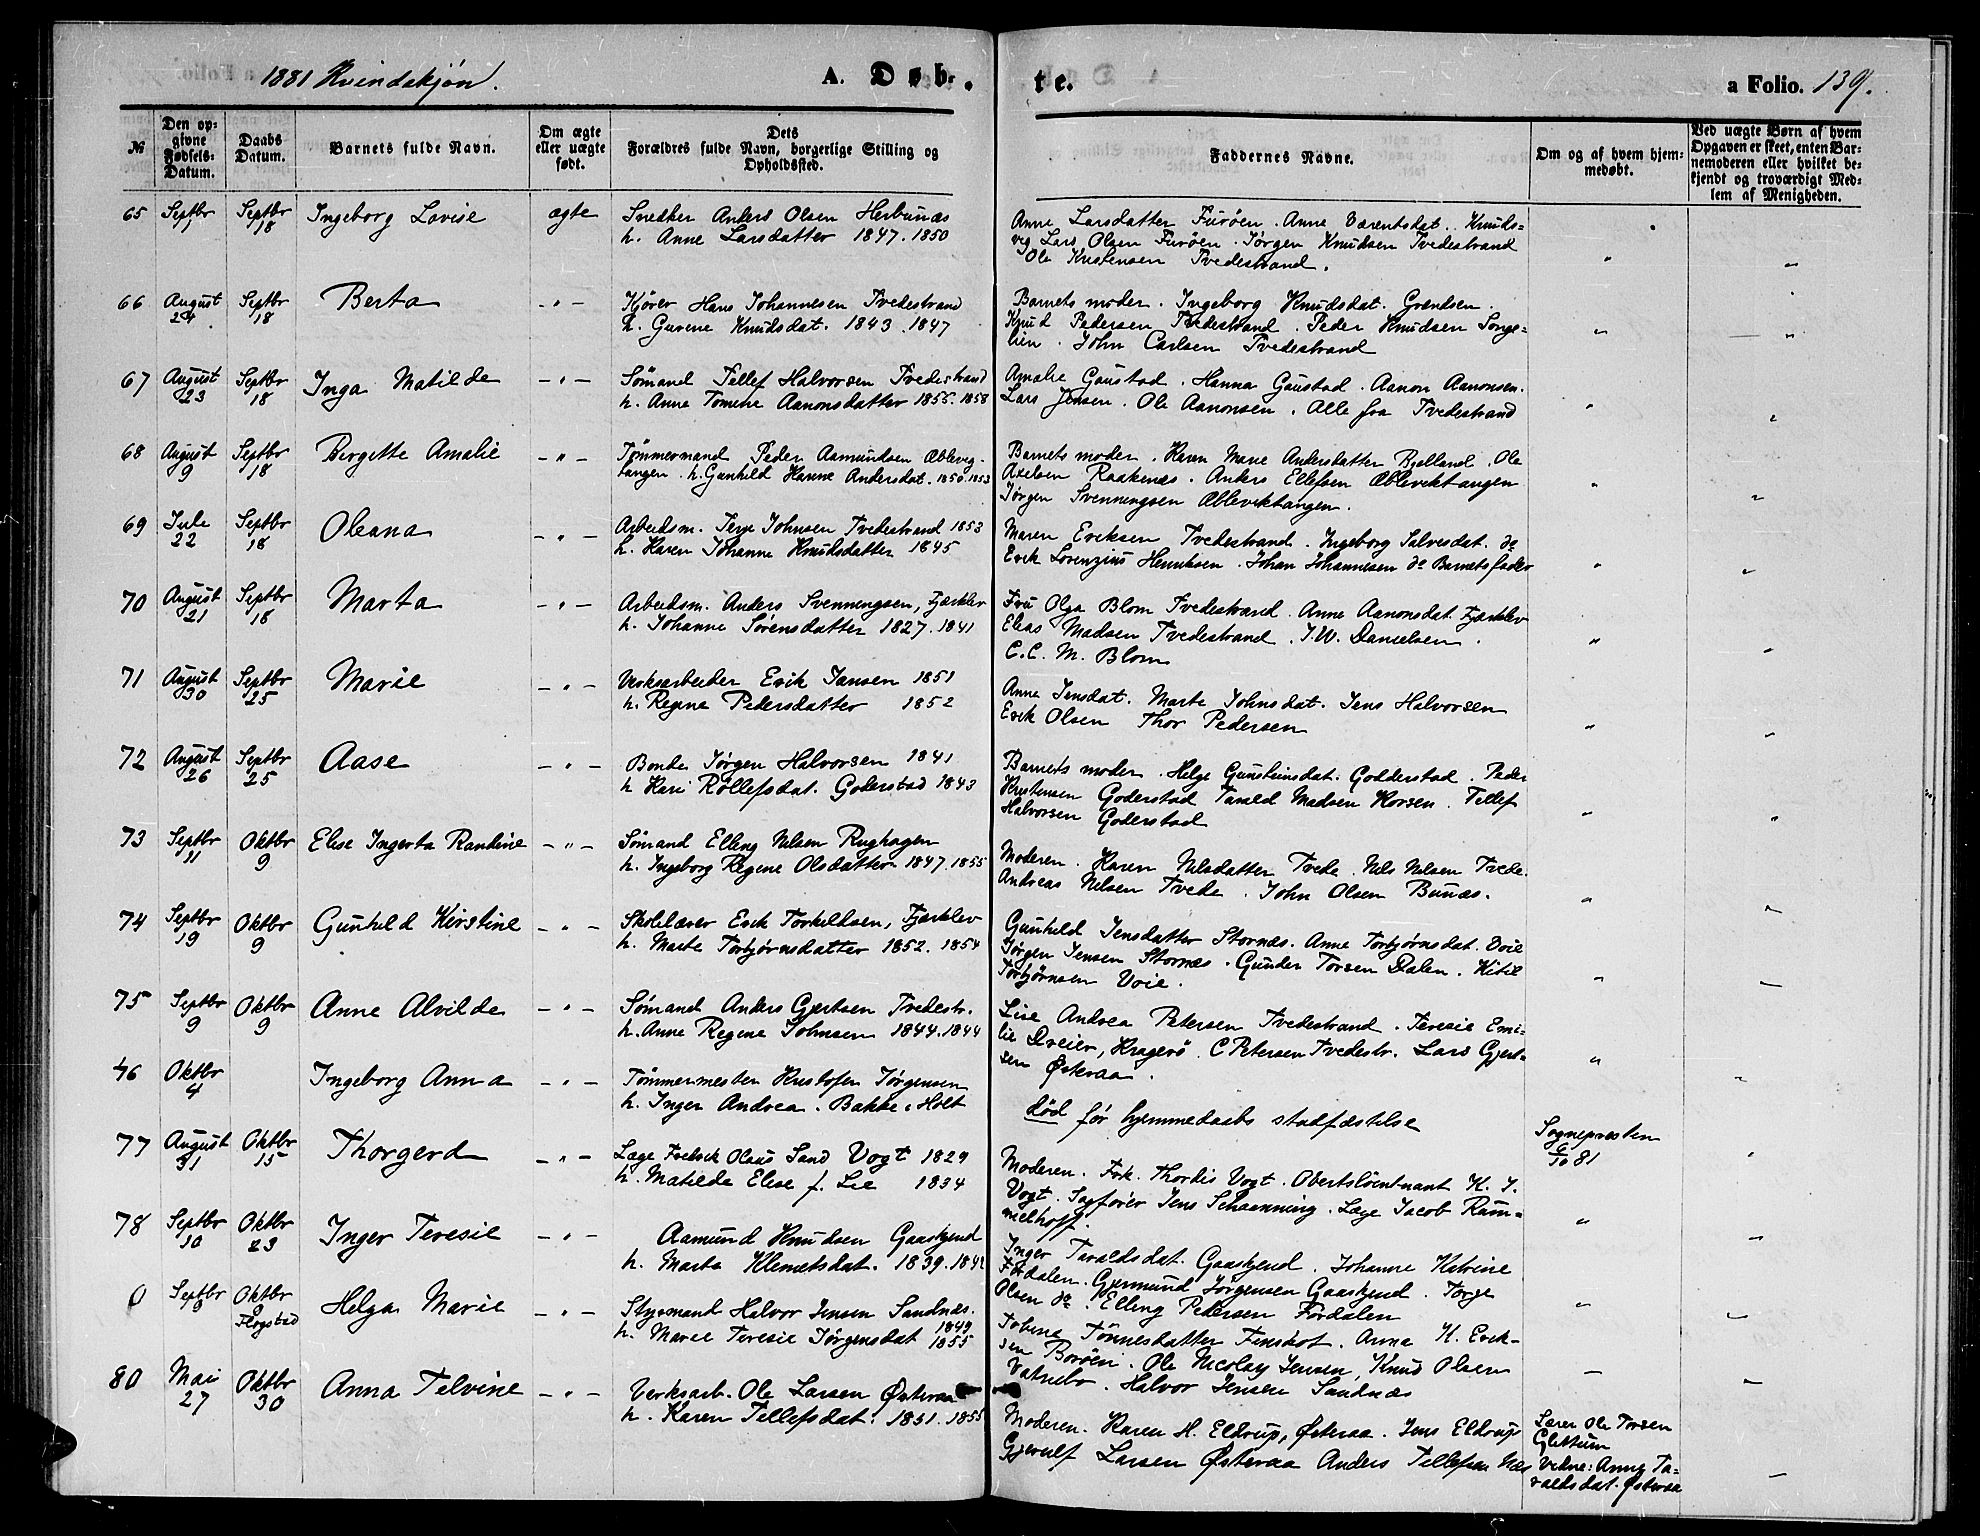 1881 Kvindekjøn.
A. Døb-
te.
a Folio. 139.
№
Den op-
givne
Fødsels-
Datum.
Daabs
Datum.
Barnets fulde Navn.
Om ægte
eller uægte
født.
Dets
Forældres fulde Navn, borgerlige Stilling og
Opholdssted.
Faddernes Navne.
Om og af hvem hjem-
medøbt.
Ved uægte Børn af hvem
Opgaven er skeet, enten Bar-
nemoderen eller hvilket be-
kjendt og troværdigt Med-
lem af Menigheden.
65 Septbr 1 Septbr 18 Ingeborg Lovise ægte Snedker Anders Olsen Herbunæs
h. Anne Larsdatter 1847. 1850
Anne Larsdatter Furøen. Anne Barentsdat. Knuds-
vig Lars Olsen Furøen. Jørgen Knudsen Tvedestrand
Ole Kristensen Tvedestrand.
66 August 24 Septbr 18 Berta - " - Kjører Hans Johannesen Tvedestrand
h. Gurene Knudsdat. 1843. 1847
Barnets moder. Ingeborg Knudsdat. Grendsen.
Knud Pedersen Tvedestrand. Peder Knudsen Songe-
lien. John Carlsen Tvedestrand
67 August 23 Septbr 18 Inga Matilde - " - Sømand Tellef Halvorsen Tvedestrand
h. Anne Tomine Aanonsdatter 1856. 1858
Amalie Goustad. Hanna Goustad. Aanon Aanonsen.
Lars Jensen. Ole Aanonsen. Alle fra Tvedestrand
68 August 9 Septbr 18 Bergitte Amalie - " - Tømmermand Peder Aamundsen Ableveg-
tangen. h. Gunhild Hanne Andersdat. 1850. 1853
Barnets moder. Karen Marie Andersdatter Bjelland. Ole
Axelsen Raakenæs. Anders Ellefsen Ableviktangen
Jørgen Svenningsen Ableviktangen.
69 Jule 22 Septbr 18 Oleana - " - Arbeidsm. Terje Johnsen Tvedestrand 1853
h. Karen Johanne Knudsdatter 1845
Maren Eriksen Tvedestrand. Ingeborg Salvesdat. do
Erik Lorenzius Henriksen. Johan Johannesen do Barnets fader
70 August 21 Septbr 18 Marta - " - Arbeidsm. Anders Svenningsen, Fjærklev
h. Johanne Sørensdatter 1827. 1841
Fru Olga Blom Tvedestrand. Anne Aanonsdat. Fjærklev
Elias Madsen Tvedestrand. J. W. Danielsen.
C. C. M. Blom
71 August 30 Septbr 25 Marie - " - Verksarbeider Erik Jansen 1851
h. Regine Pedersdatter 1852
Anne Jensdat. Marte Johnsdat. Jens Halvorsen
Erik Olsen Thor Pedersen
72 August 26 Septbr 25 Aase - " - Bonde Jørgen Halvorsen 1841
h Kari Rollefsdat. Goderstad 1843
Barnets moder. Helge Gunsteinsdat. Godderstad. Peder
Kristensen Goderstad Tarald Madsen Korsen. Tellef
Halvorsen Goderstad
73 Septbr 11 Oktbr 9 Elise Ingerta Randine - " - Sømand Elling Nilsen Rughagen
h. Ingeborg Regine Olsdatter 1847. 1855
Moderen. Karen Nilsdatter Tvede. Nils Nilsen Tvede.
Andreas Nilsen Tvede. John Olsen Bunæs.
74 Septbr 19 Oktbr 9 Gunhild Kirstine - " - Skolelærer Erik Torkildsen, Fjærklev
h. Marte Torbjørnsdatter 1852. 1854
Gunhild Jensdatter Stornæs. Anne Torbjørnsdat. Voie
Jørgen Jensen Stornæs. Gunder Torsen Dalen. Kitil
Torbjørnsen Voie.
75 Septbr 9 Oktbr 9 Anne Alvilde - " - Sømand Anders Gjertsen Tvedestr.
h. Anne Regine Johnsen 1844. 1844
Lise Andrea Petersen Tvedestrand. Teresie Emi-
lie Dreier, Kragerø. C Petersen Tvedestr. Lars Gjert-
sen Østeraa.
76 Oktbr 4 Ingeborg Anna - " - Tømmermester Kristofer Jørgensen
h. Inger Andrea. Bakke i Holt
død før hjemmedaabs stadfæstelse
Sognepresten
6/10 81
77 August 31 Oktbr 15 Thorgerd - " - Læge Fredrik Olaus Sand Vogt 1829
h. Matilde Elise f. Lie 1834
Moderen. Frk. Thordis Vogt. Oberstløitnant H. J.
Vogt. Sagfører Jens Schanning. Læge Jacob Rum-
melhoff.
78 Septbr 10 Oktbr 23 Inger Teresie - " - Aamund Knudsen Gaaskjend
h. Marte Klemetsdat. 1839. 1842
Inger Taraldsdat. Gaaskjend. Johanne Katrine
Fordalen. Gjermund Jørgensen Gaaskjend. Torje
Olsen do. Elling Pedersen Fordalen
0 Septbr 9 Oktbr 9 Flogstad Helga Marie - " - Styrmand Halvor Jensen Sandnæs. 1849
h. Marie Teresie Jørgensdat 1855
Tobine Tønnesdatter Fenskot. Anne H. Erik-
sen Borøen. Ole Nicolay Jensen, Knud Olsen
Vatnebo. Halvor Jensen Sandnæs
80 Mai 27 Oktbr 30 Anna Telvine - " - Verksarb. Ole Larsen Østeraa
h. Karen Tellefsdat. 1851. 1855
Moderen. Karen H. Eldrup, Østeraa. Jens Eldrup
Gjerulf Larsen Østeraa Anders Tellefsen Næs
Lærer Ole Torsen
Glettum
Vidne: Anne Ta-
raldsdat. Østeraa